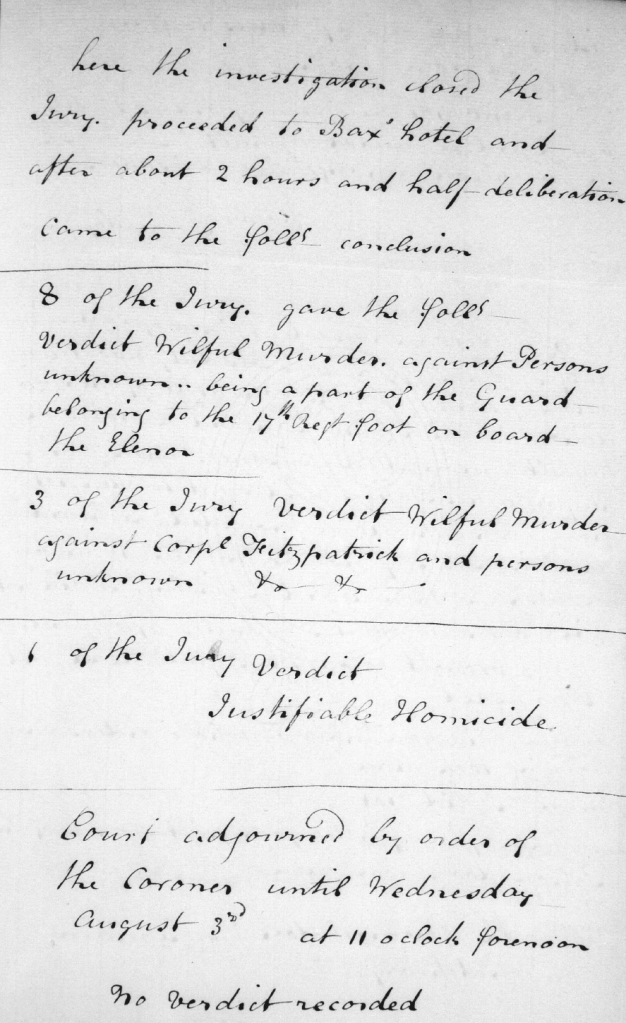 here the investigation closed the
Jury. proceeded to Bax' hotel and
after about 2 hours and half deliberation
came to the follg conclusion
8 of the Jury. gave the follg
Verdict Wilful Murder. against Persons
unknown.. being a part of the Guard
belonging to the 17th Regt foot on board
the Elenor
3 of the Jury Verdict Wilful Murder
against Corpl Fitzpatrick and persons
unknown &c &c
1 of the Jury Verdict
Justifiable Homicide
Court adjourned by order of
the Coroner until Wednesday
August 3rd at 11 o clock forenoon
No Verdict recorded